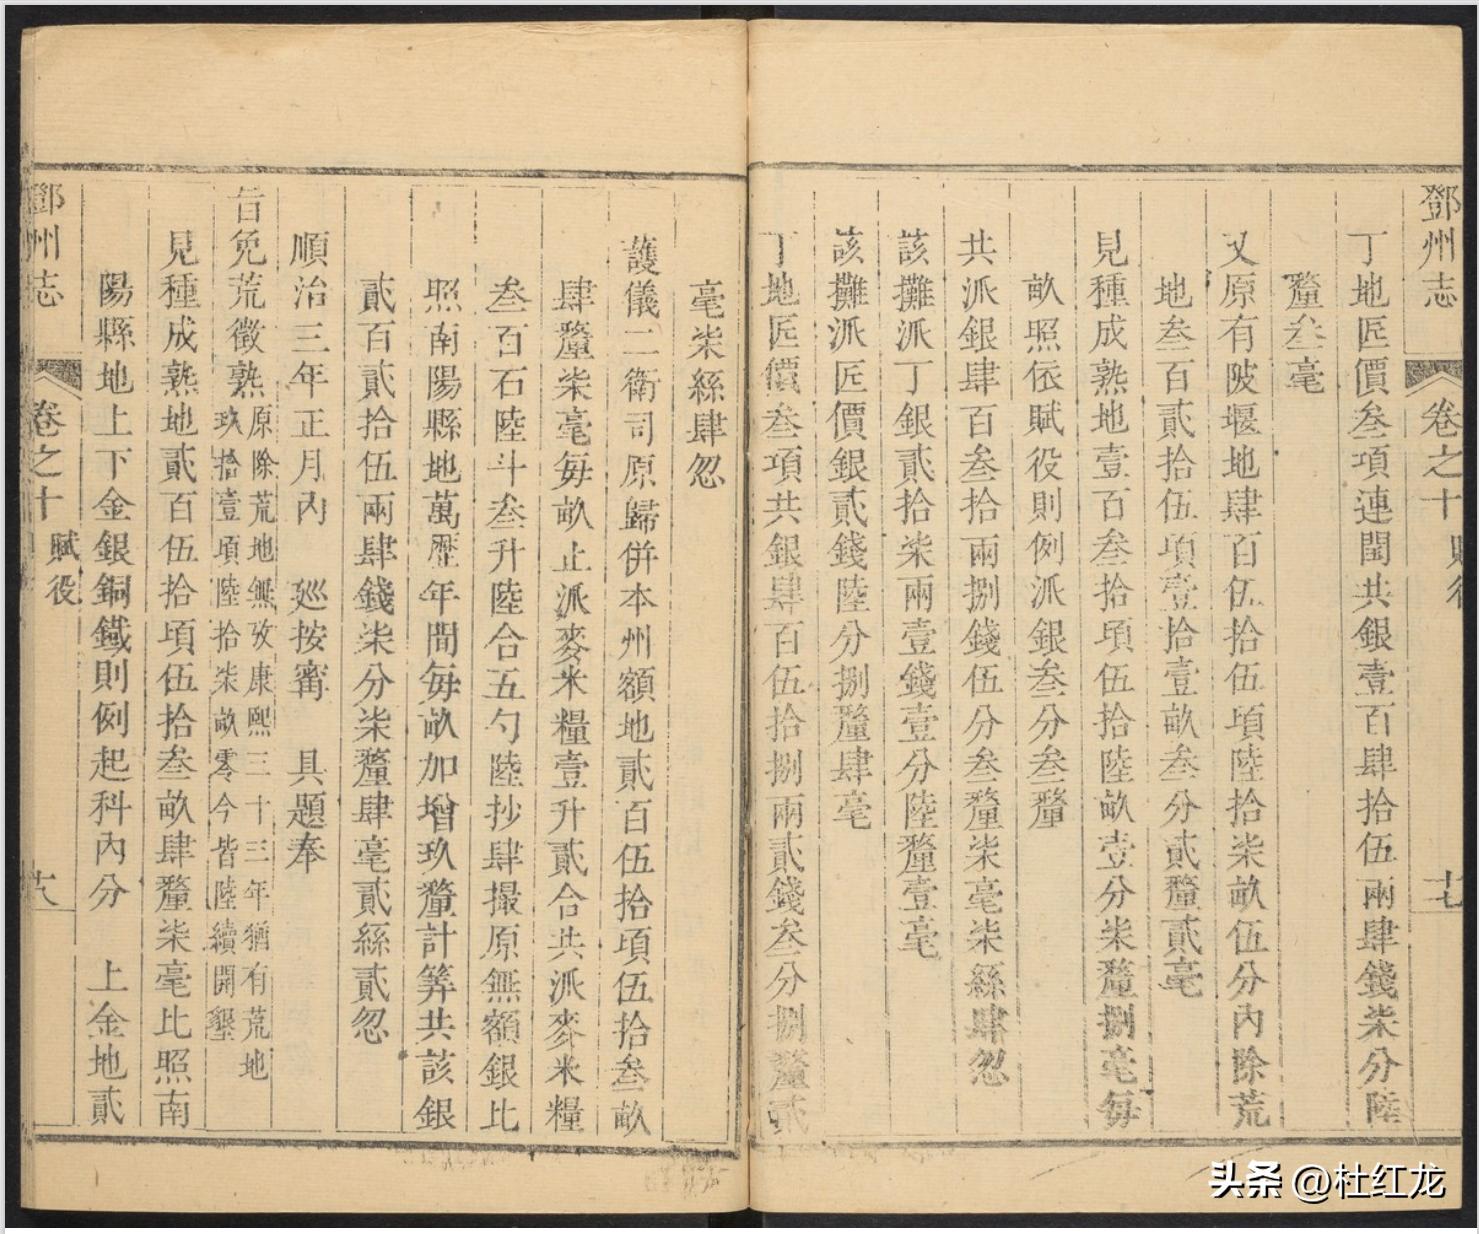 鄧州志
卷之十
賦役
十七
丁地匠價叁項連閏共銀壹百肆拾伍兩肆錢柒分陸
釐叁毫
又原有陂堰地肆百伍拾伍頃陸拾柒畝伍分內除荒
地叁百貳拾伍頃壹拾壹畝叁分貳釐貳毫
見種成熟地壹百叁拾頃伍拾陸畝壹分柒釐捌毫每
畝照依賦役則例派銀叁分叁釐
共派銀肆百叁拾兩捌錢伍分叁釐柒毫柒絲肆忽
該攤派丁銀貳拾柒兩壹錢壹分陸釐壹毫
該攤派匠價銀貳錢陸分捌釐肆毫
丁地匠價叁項共銀肆百伍拾捌兩貳錢叁分捌釐貳
毫柒絲肆忽
護儀二衛司原歸併本州額地貳百伍拾頃伍拾叁畝
肆釐柒毫每畝止派麥米糧壹升貳合共派麥米糧
叁百石陸斗叁升陸合五勺陸抄肆撮原無額銀比
照南陽縣地萬歷年間每畝加增玖釐計筭共該銀
貳百貳拾伍兩肆錢柒分柒釐肆毫貳絲貳忽
順治三年正月內 巡按甯 具題奉
旨免荒徵熟原除荒地無攷康熙三十三年猶有荒地
玖拾壹頃陸拾柒畝零今皆陸續開墾
見種成熟地貳百伍拾頃伍拾叁畝肆釐柒毫比照南
陽縣地上下金銀銅鐵則例起科內分 上金地貳
鄧州志
卷之十
賦役
十八
头条 @杜红龙